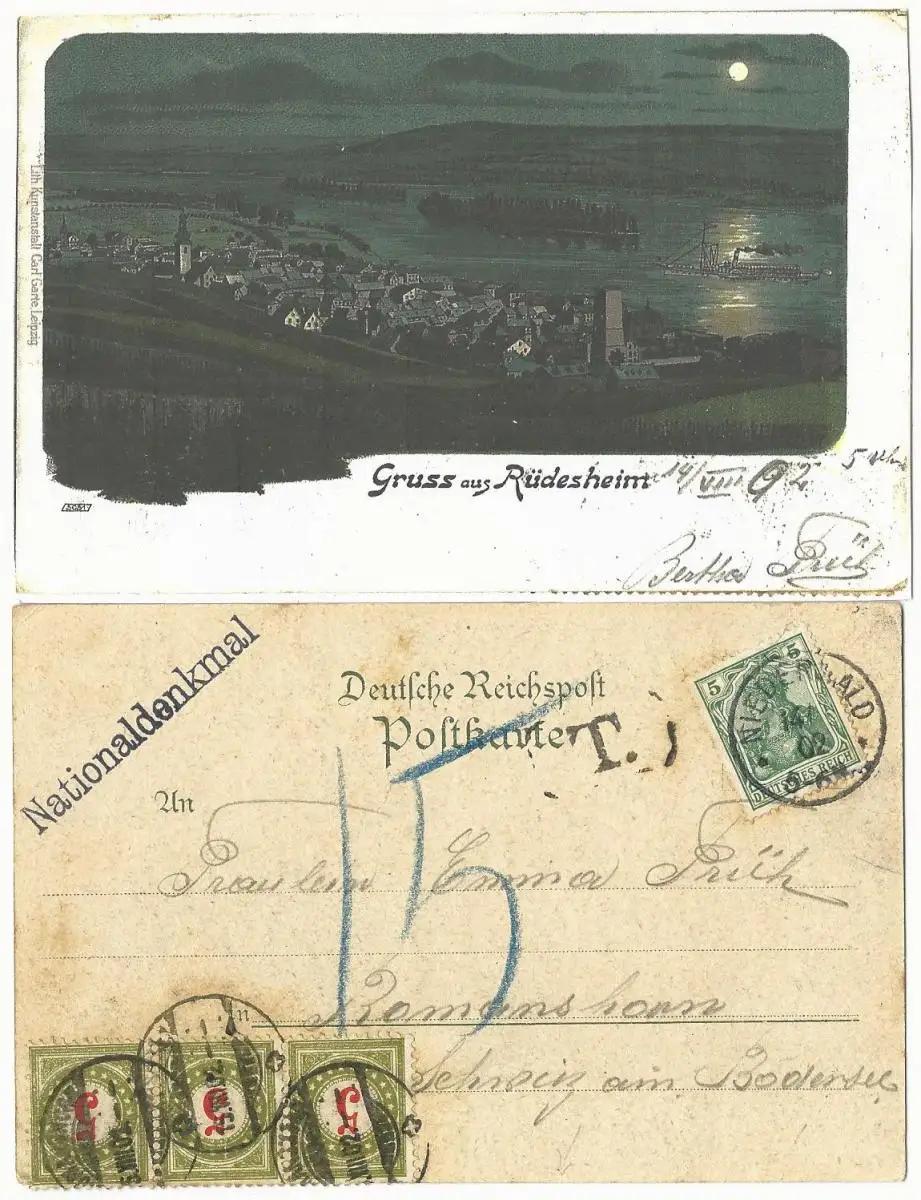 Lith Kunstanstalt Carl Garte Leipzig
Gruss aus Rüdesheim
14/VIII 02
5
Bertha Früh
Nationaldenkmal
Deutsche Reichspost
Postkarte
T.
5 5
DEUTSCHES REICH
NIEDERWALD
14/
02
15
An
Fräulein Emma Früh
in
Romanshorn
Schweiz am Bodensee
5
5
5